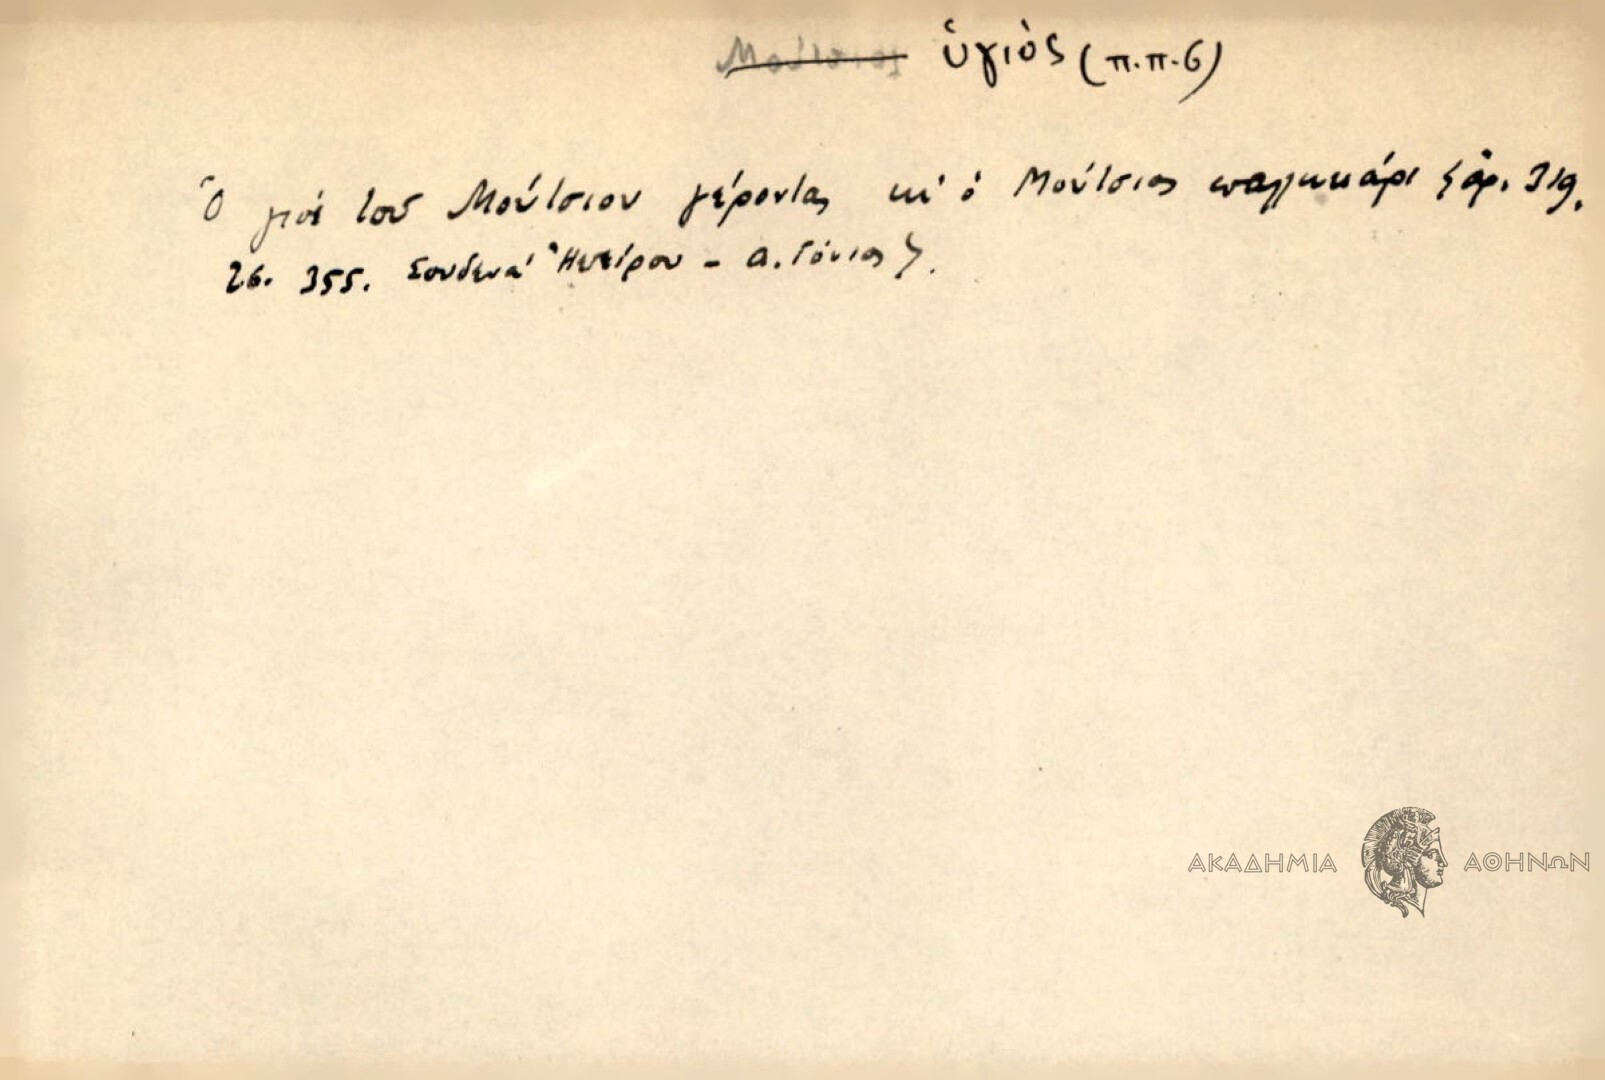 Μούτσιος ὑγιὸς (π.π.6)
Ὁ γιὸς τοῦ Μούτσιου γέροντας κι' ὁ Μούτσιος παλληκάρι {ἀρ. 319,
26. 355. Σουδενά Ἠπείρου - Α. Γόνιος}.
ΑΚΑΔΗΜΙΑ ΑΘΗΝΩΝ